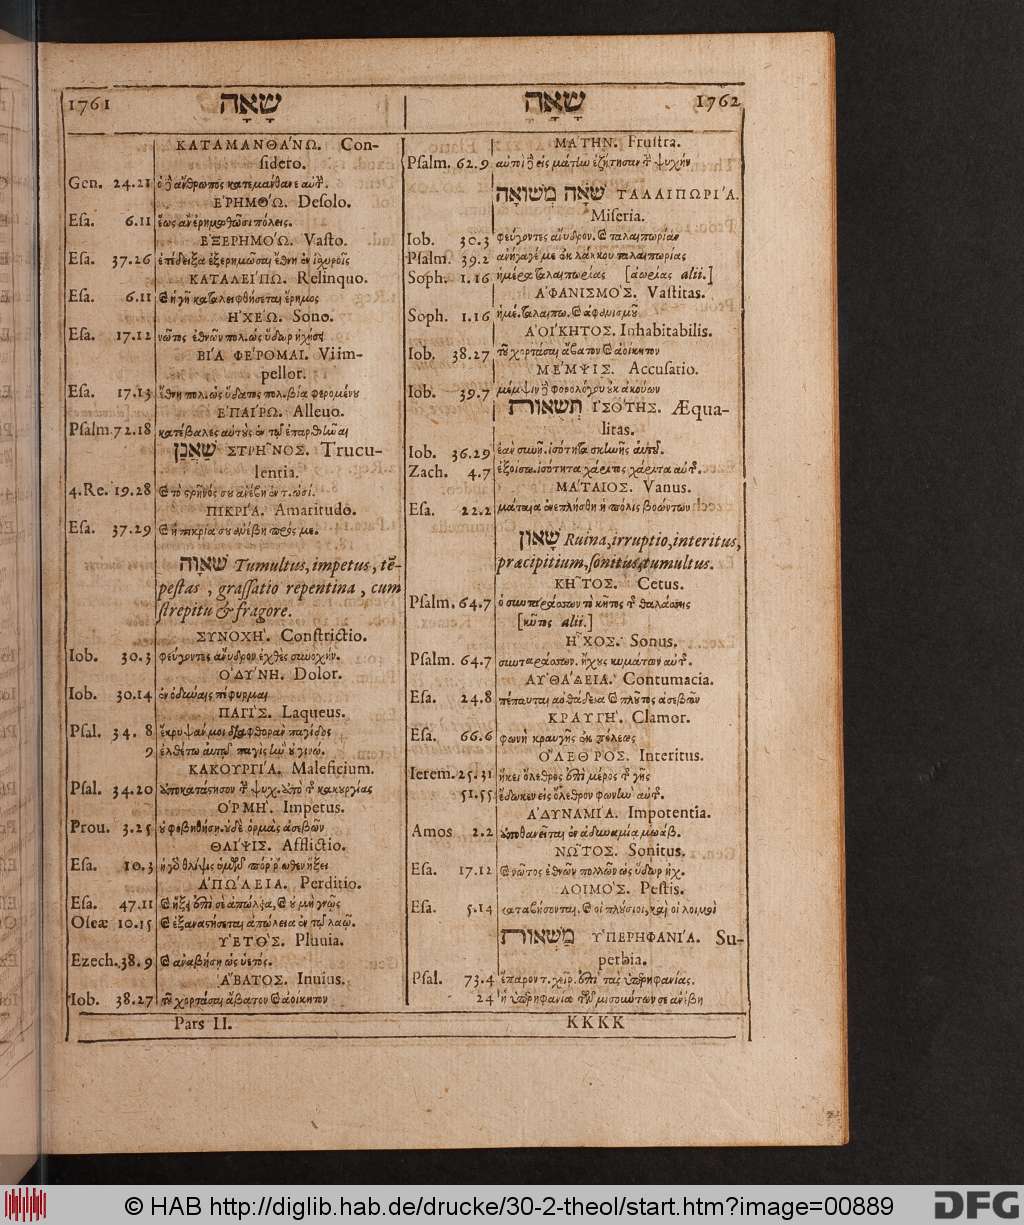 1761 שָׁאָה
ΚΑΤΑΜΑΝΘΆΝΩ. Con-
sidero.
Gen. 24.21 ὁ δὲ ἄνθρωπος κατεμάνθανε αὐτ.
ἘΡΗΜΌΩ. Desolo.
Esa. 6.11 ἕως ἂν ἐρημωθῶσι πόλεις.
ἘΞΕΡΗΜΌΩ. Vasto.
Esa. 37.26 ἐπέδειξα ἐξερημῶσαι ἔθνη ἐν
ΚΑΤΑΛΕΊΠΩ. Relinquo.
Esa. 6.11 καὶ ἡ γῆ καταλειφθήσεται ἔρημος
ἨΧΈΩ. Sono.
Esa. 17.12 νῶτος ἐθνῶν πολ. ὡς ὕδωρ ἠχήσει
ΒΊΑ ΦΕΡΟΜΑΙ. Vi im-
pellor.
Esa. 17.13 ἔθνη πολ. ὡς ὕδατος πολ. βίᾳ φερομένου
ἘΠΑΊΡΩ. Alleuo.
Psalm. 72.18 κατέβαλες αὐτοὺς ἐν τῷ ἐπαρθῆναι
שַׁאֲנָן ΣΤΡΗ͂ΝΟΣ. Trucu-
lentia.
4.Re. 19.28 καὶ τὸ στρῆνός σου ἀνέβη ἐν τ. ὠσί.
ΠΙΚΡΊΑ. Amaritudo.
Esa. 37.29 καὶ ἡ πικρία σου ἀνέβη πρός με.
שׁאָוָה Tumultus, impetus, tē-
pestas, grassatio repentina, cum
strepitu & fragore.
ΣΥΝΟΧΉ. Constrictio.
Iob. 30.3 φεύγοντες ἄνυδρον ἐχθὲς συνοχήν.
ὈΔΎΝΗ. Dolor.
Iob. 30.14 ἐν ὀδύναις πέφυρμαι
ΠΑΓΊΣ. Laqueus.
Psal. 34. 8 ἔκρυψάν μοι διαφθορὰν παγίδος
9 ἐλθέτω αὐτῷ παγὶς ἣν οὐ γινώ.
ΚΑΚΟΥΡΓΊΑ. Maleficium.
Psal. 34.20 ἀποκατάστησον τ ψυχ. ἀπὸ τ κακουργίας
ὉΡΜΉ. Impetus.
Prou. 3.25 οὐ φοβηθήσῃ. οὐδὲ ὁρμὰς ἀσεβῶν
ΘΛΊΨΙΣ. Afflictio.
Esa. 10.3 ἡ γὰρ θλῖψις ὑμῖν πόῤῥωθεν ἥξει
ἈΠΏΛΕΙΑ. Perditio.
Esa. 47.11 καὶ ἥξει ἐπὶ σὲ ἀπώλεια, καὶ οὐ μὴ γνῷς
Oseæ 10.15 καὶ ἐξαναστήσεται ἀπώλεια ἐν τῷ λαῷ.
ὙΕΤΌΣ. Pluuia.
Ezech. 38. 9 καὶ ἀναβήσῃ ὡς ὑετός.
ἌΒΑΤΟΣ. Inuius.
Iob. 38.27 τοῦ χορτάσαι ἄβατον καὶ ἀοίκητον
Pars II.
שָׁאָה 1762
ΜΆΤΗΝ. Frustra.
Psalm. 62.9 αὐτοὶ δὲ εἰς μάτην ἐζήτησαν τ ψυχήν
שֹׁאָה מְשׁוֹאָה ΤΑΛΑΙΠΩΡΊΑ.
Miseria.
Iob. 30.3 φεύγοντες ἄνυδρον. καὶ ταλαιπωρίαν
Psalm. 39.2 ἀνήγαγέ με ἐκ λάκκου ταλαιπωρίας
Soph. 1.16 ἡμέρα ταλαιπωρίας [ἀωρίας alii.]
ἈΦΑΝΙΣΜΌΣ. Vastitas.
Soph. 1.16 ἡμέ. ταλαιπω. καὶ ἀφανισμοῦ
ἈΟΊΚΗΤΟΣ. Inhabitabilis.
Iob. 38.27 τοῦ χορτάσαι ἄβατον καὶ ἀοίκητον
ΜΕ͂ΜΨΙΣ. Accusatio.
Iob. 39.7 μέμψιν δὲ φορολόγου οὐκ ἀκούων
תְּשֻׁאוֹת ἸΣΌΤΗΣ. Æqua-
litas.
Iob. 36.29 ἐὰν συνῇ. ἰσότητα σκηνῆς αὐτοῦ.
Zach. 4.7 ἐξοίσω. ἰσότητα χάριτος χάριτα αὐτ.
ΜΆΤΑΙΟΣ. Vanus.
Esa. 22.2 μάταια ἐνεπλήσθη ἡ πόλις βοώντων
שָׁאוֹן Ruina, irruptio, interitus,
præcipitium, sonitus, tumultus.
ΚΗ͂ΤΟΣ. Cetus.
Psalm. 64.7 ὁ συνταράσσων τὸ κῆτος τ θαλάσσης
[κῦτος alii.]
ἮΧΟΣ. Sonus.
Psalm. 64.7 συνταράσσων. ἤχους κυμάτων αὐτ.
ΑΥ̓ΘΆΔΕΙΑ. Contumacia.
Esa. 24.8 πέπαυται αὐθάδεια καὶ πλοῦτος ἀσεβῶν
ΚΡΑΥΓΉ. Clamor.
Esa. 66.6 φωνὴ κραυγῆς ἐκ πόλεως
ὌΛΕΘΡΟΣ. Interitus.
Ierem. 25.31 ἥκει ὄλεθρος ἐπὶ μέρος τ γῆς
51.55 ἔδωκεν εἰς ὄλεθρον φωνὴν αὐτ.
ἈΔΥΝΑΜΊΑ. Impotentia.
Amos 2.2 ἀποθανεῖται ἐν ἀδυναμίᾳ μωάβ.
ΝΩ͂ΤΟΣ. Sonitus.
Esa. 17.12 καὶ νῶτος ἐθνῶν πολλῶν ὡς ὕδωρ ἠχ.
ΛΟΙΜΌΣ. Pestis.
Esa. 5.14 καταβήσονται. καὶ οἱ πλούσιοι, καὶ οἱ λοιμοὶ
מַשֻּׁאוֹת ὙΠΕΡΗΦΑΝΊΑ. Su-
perbia.
Psal. 73.4 ἔπαρον τ. χεῖρ. ἐπὶ τὰς ὑπερηφανίας.
24 ἡ ὑπερηφανία τῶν μισούντων σε ἀνέβη
KKKK
© HAB http://diglib.hab.de/drucke/30-2-theol/start.htm?image=00889
DFG